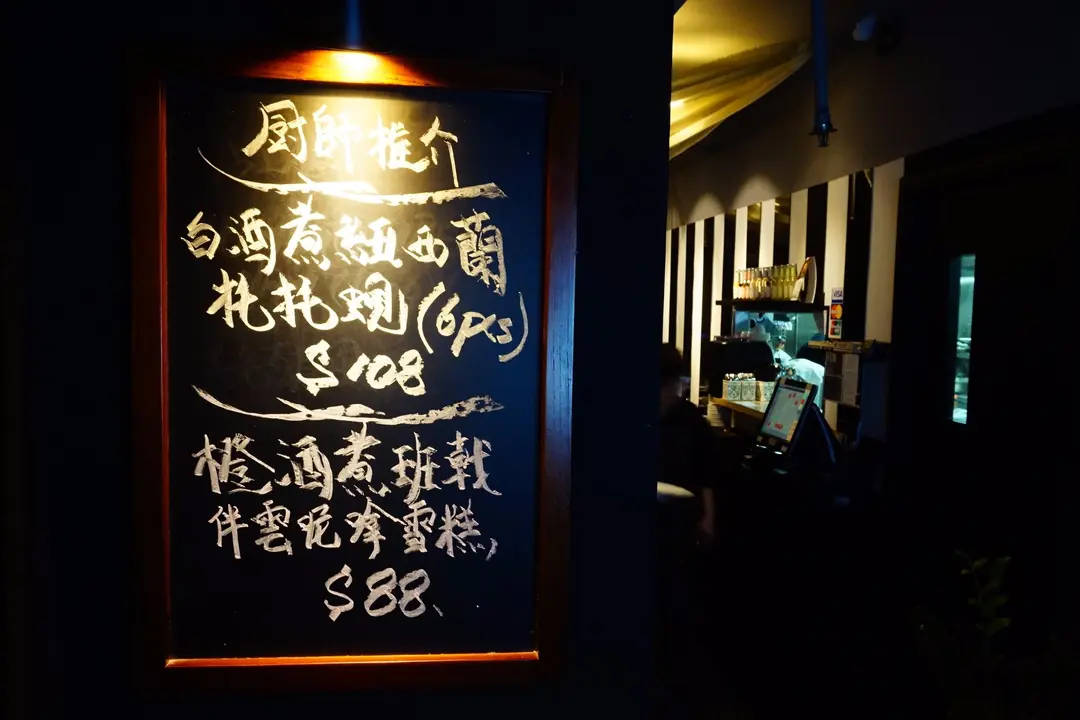 厨師推介
白酒煮紐西蘭
托托蜆(6pcs)
$108
橙酒煮班戟
伴雲呢拿雪糕
$88
VISA